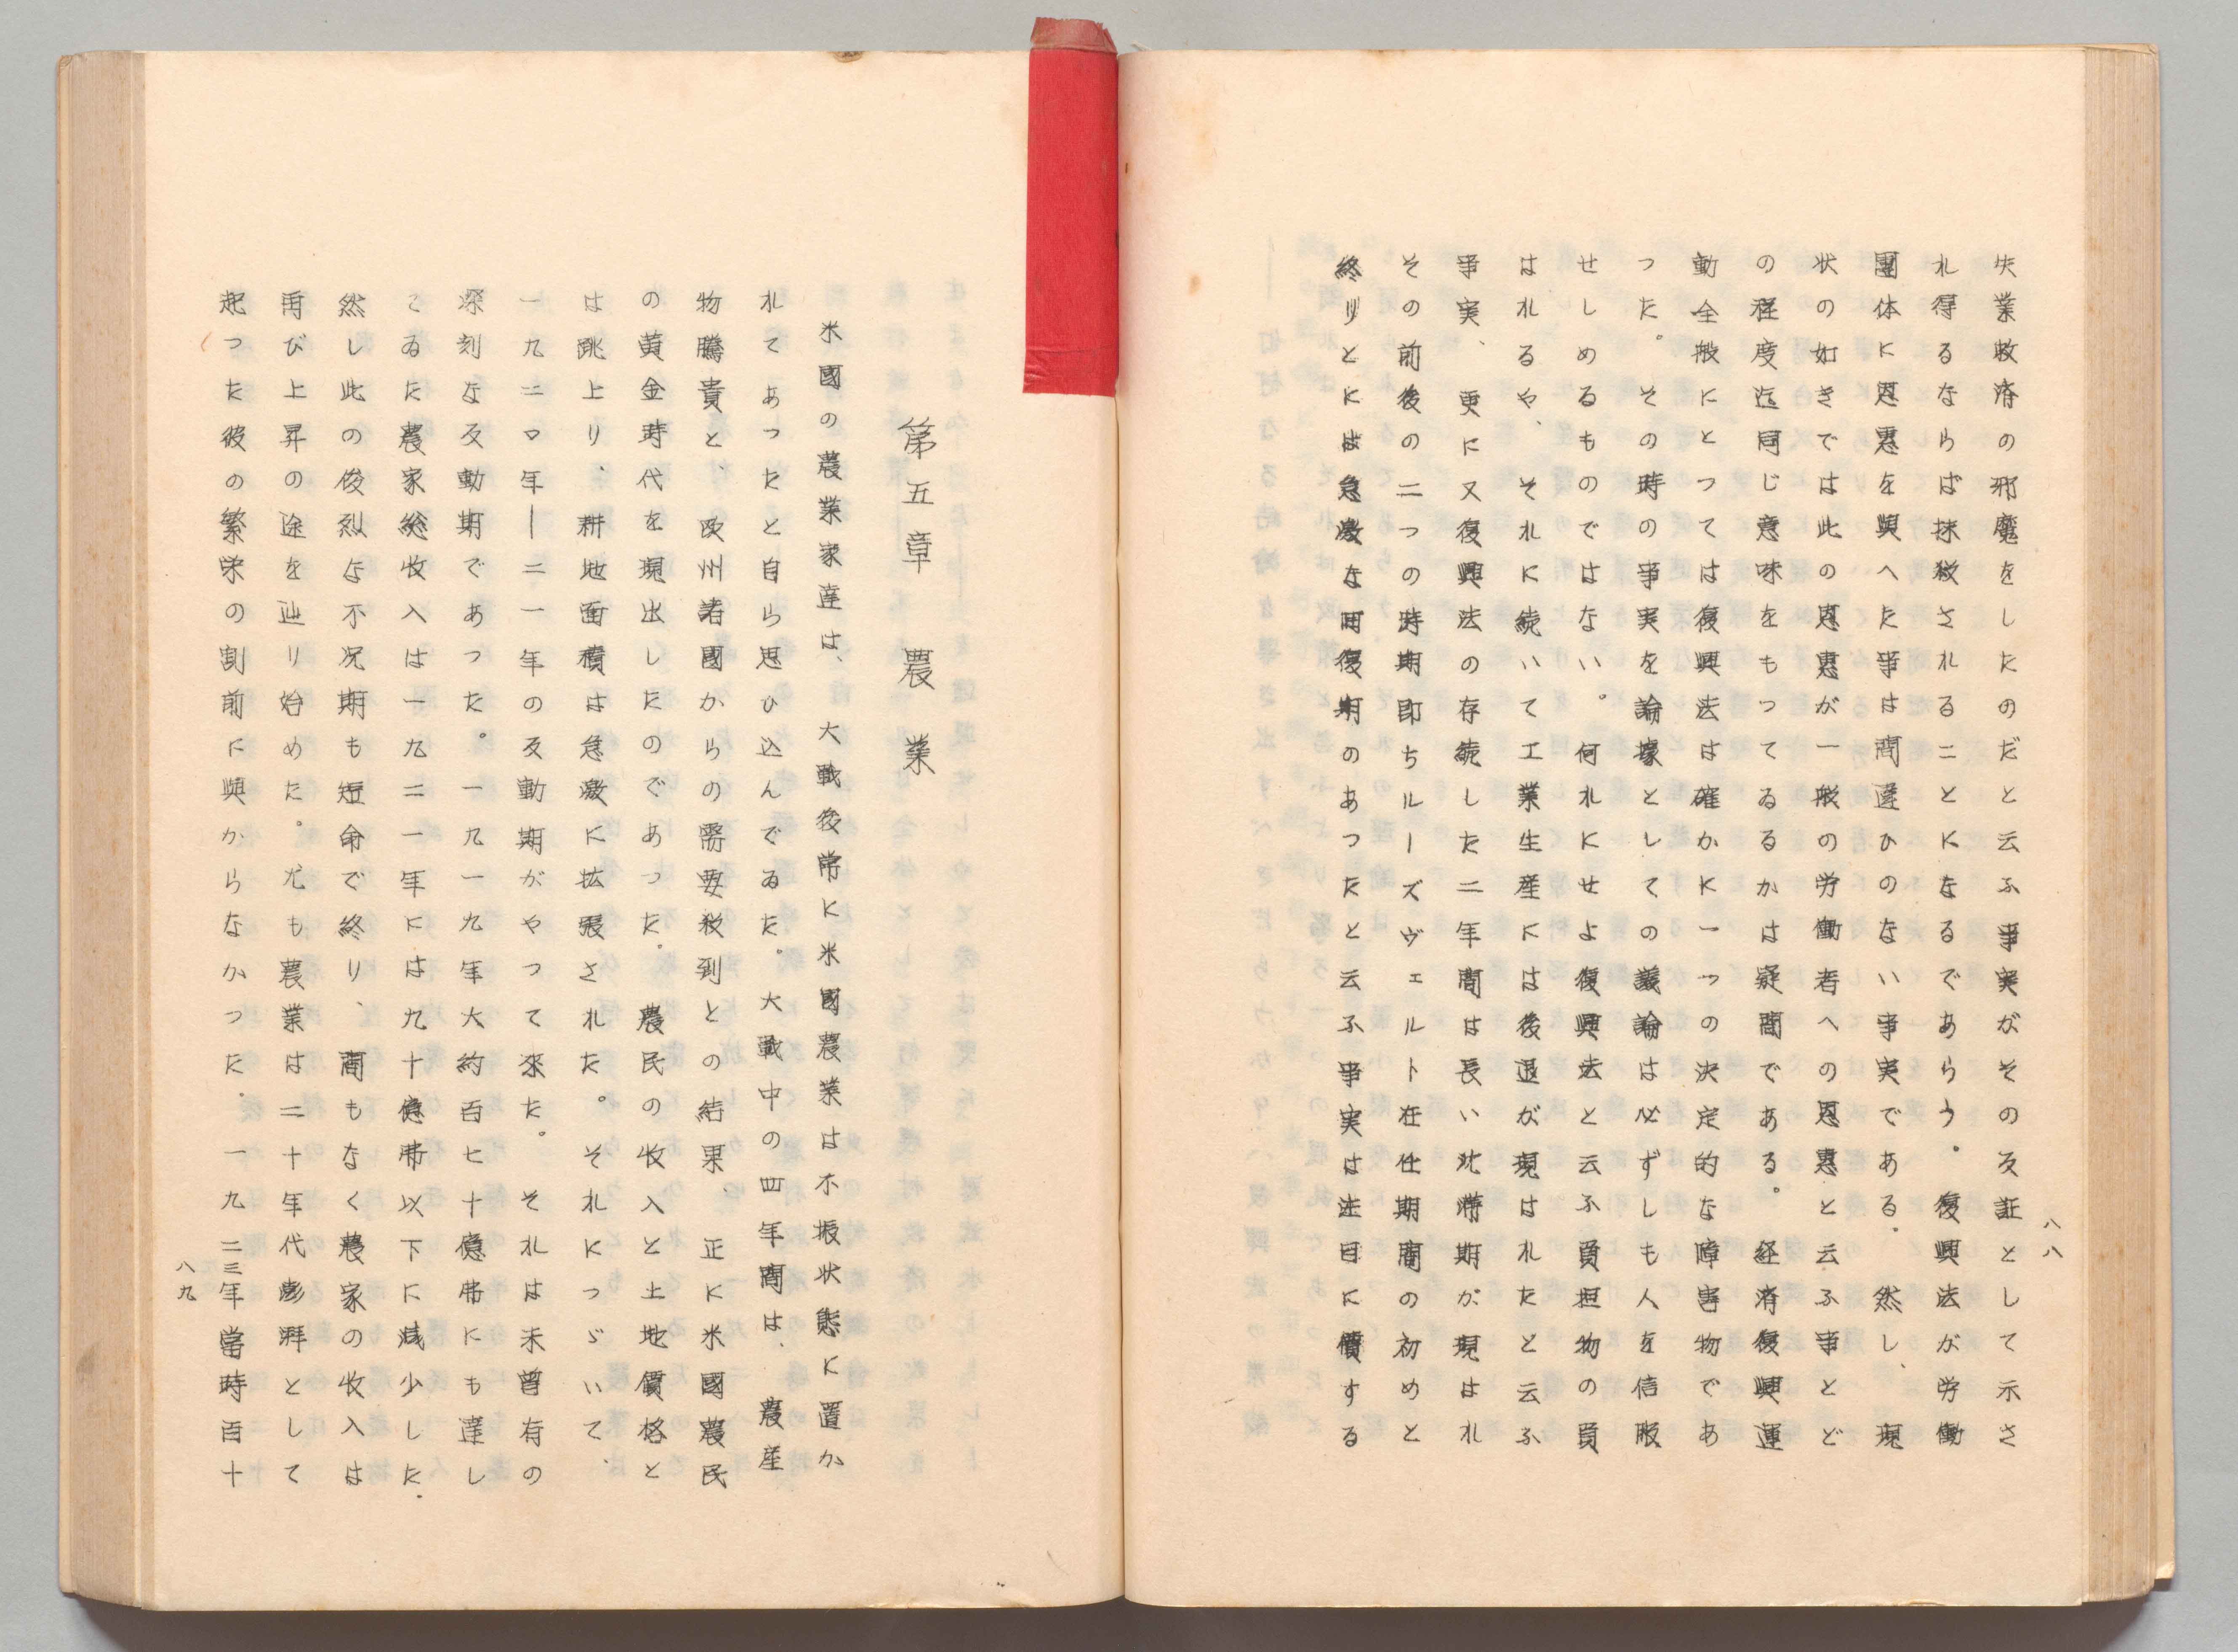 失業救済の邪魔をしたのだと云ふ事実がその反証として示さ
れ得るならば抹殺されることになるであらう。復興法が労働
團体に恩恵を與へた事は間違ひのない事実である。然し、現
状の如きでは此の恩恵が一般の労働者への恩恵と云ふ事とど
の程度迄同じ意味をもつてゐるかは疑問である。経済復興運
動全般にとつては復興法は確かに一つの決定的な障害物であ
つた。その時の事実を論壕としての議論は必ずしも人を信服
せしめるものではない。何れにせよ復興法と云ふ負担物の負
はれるや、それに続いて工業生産には後退が現はれたと云ふ
事実、更に又復興法の存続した二年間は長い沈滞期が現はれ
その前後の二つの時期即ちルーズヴェルト在仕期間の初めと
終りとには急激な回復期のあつたと云ふ事実は注目に價する
八八
第五章 農業
米國の農業家達は、大戰後常に米國農業は不振状態に置か
れてあつたと自ら思ひ込んでゐた。大戰中の四年間は、農産
物騰貴と、欧州諸國からの需要殺到との結果、正に米國農民
の黄金時代を現出したのであつた。農民の收入と土地價格と
は跳上り、耕地面積は急激に拡張された。それにつゞいて、
一九二〇年―二一年の反動期がやつて來た。それは未曽有の
深刻な反動期であつた。一九一九年大約百七十億弗にも達し
てゐた農家総收入は一九二一年には九十億弗以下に減少した.
然し此の後烈な不況期も短命で終り、間もなく農家の收入は
再び上昇の途を辿り始めた。尤も農業は二十年代澎湃として
起つた彼の繁栄の割前に與からなかつた.一九二三年當時百十
八九